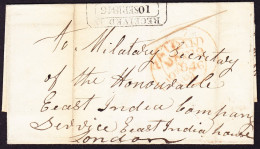 RECEIVED
To Military Secretary
of the Honourable
East India Company
Service East India house
London